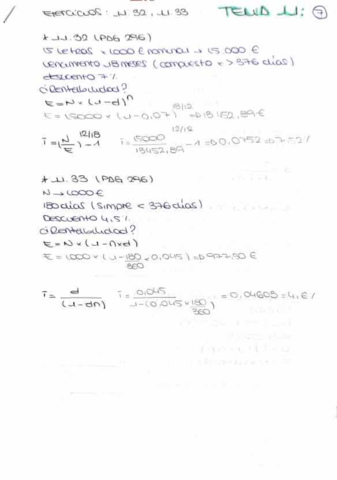 Ejercicios: 11.32, 11.33 TEMA 11: 7
* 11.32 (PÁG 296)
15 letras × 1000€ nominal → 15.000€
vencimiento 18 meses (compuesto => 376 días)
descuento 7%
¿Rentabilidad?
E = N × (1-d)^n
E = 15000 × (1-0,07)^18/12 => 13452,89€
i = (N/E)^12/18 - 1 i = (15000/13452,89)^12/18 - 1 => 0,0752 => 7,52%
* 11.33 (PÁG 296)
N → 1000€
180 días (simple < 376 días)
Descuento 4,5%
¿Rentabilidad?
E = N × (1-n×d)
E = 1000 × (1 - 180/360 × 0,045) => 977,50€
i = d/(1-dn) i = 0,045/1-(0,045 × 180/360) = 0,04603 = 4,6%